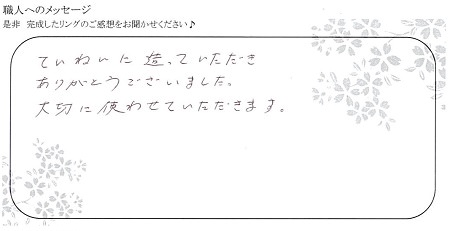 職人へのメッセージ
是非 完成したリングのご感想をお聞かせください♪
ていねいに造っていただき
ありがとうございました。
大切に使わせていただきます。